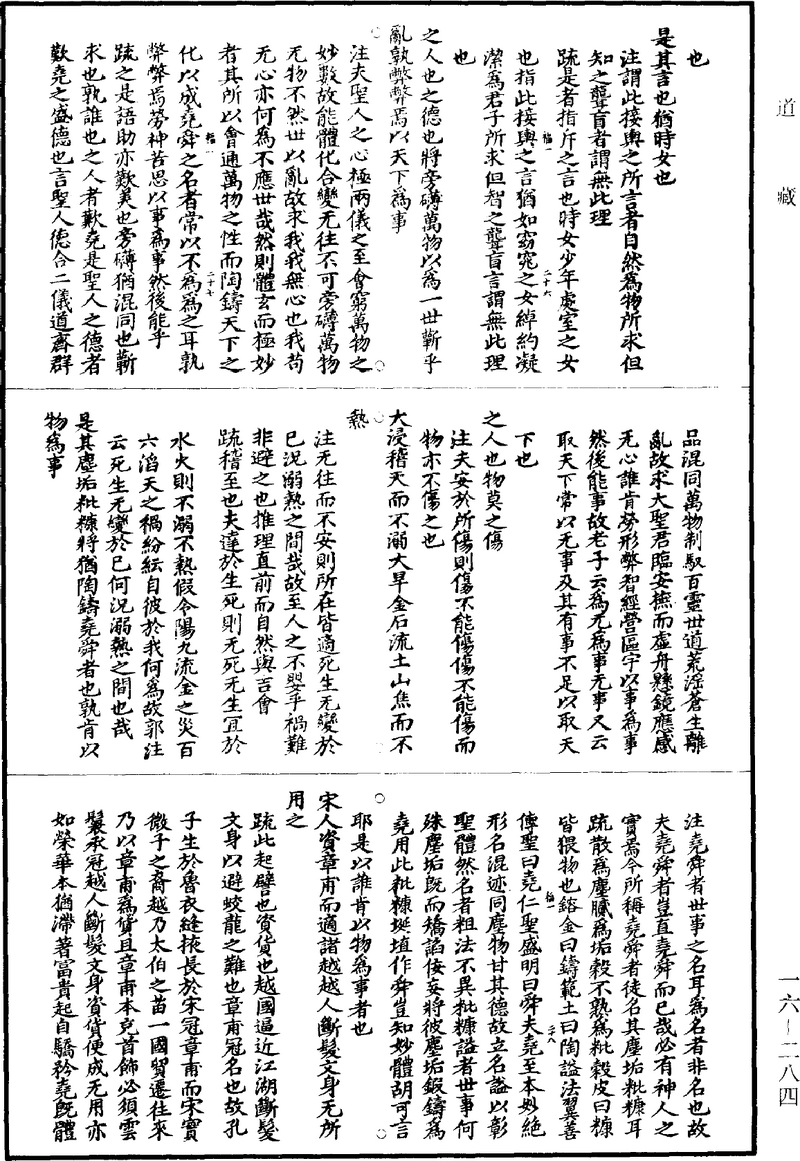 道藏
也
是其言也猶時女也
注謂此接輿之所言者自然爲物所求但
知之聾盲者謂無此理
疏是者指斥之言也時女少年處室之女
也指此接輿之言猶如窈窕之女綽約凝
潔爲君子所求但智之聾盲言謂無此理
也
之人也之德也將旁礴萬物以爲一世蘄乎
亂孰弊弊焉以天下爲事
注夫聖人之心極兩儀之至會窮萬物之
妙數故能體化合變无往不可旁礴萬物
无物不然世以亂故求我我無心也我苟
无心亦何爲不應世哉然則體玄而極妙
者其所以會通萬物之性而陶鑄天下之
化以成堯舜之名者常以不爲爲之耳孰
弊弊焉勞神苦思以事爲事然後能乎
疏之是語助亦歎美也旁礴猶混同也蘄
求也孰誰也之人者歎堯是聖人之德者
歎堯之盛德也言聖人德合二儀道齊群
品混同萬物制馭百靈世道荒淫蒼生離
亂故求大聖君臨安撫而虛舟懸鏡應感
无心誰肯勞形弊智經營區宇以事爲事
然後能事故老子云爲无爲事无事又云
取天下常以无事及其有事不足以取天
下也
之人也物莫之傷
注夫安於所傷則傷不能傷傷不能傷而
物亦不傷之也
大浸稽天而不溺大旱金石流土山焦而不
熱
注无往而不安則所在皆適死生无變於
已況溺熱之間哉故至人之不嬰乎禍難
非避之也推理直前而自然與吉會
疏稽至也夫達於生死則无死无生宜於
水火則不溺不熱假令陽九流金之災百
六滔天之禍紛紜自彼於我何爲故郭注
云死生无變於已何況溺熱之間也哉
是其塵垢粃糠將猶陶鑄堯舜者也孰肯以
物爲事
注堯舜者世事之名耳爲名者非名也故
夫堯舜者豈直堯舜而已哉必有神人之
實焉今所稱堯舜者徒名其塵垢粃糠耳
疏散爲塵膩爲垢穀不熟爲粃穀皮曰糠
皆猥物也鎔金曰鑄範土曰陶謚法翼善
傳聖曰堯仁聖盛明曰舜夫堯至本妙絕
形名混迹同塵物甘其德故立名謚以彰
聖體然名者粗法不異粃糠謚者世事何
殊塵垢既而矯諂佞妄將彼塵垢鍛鑄爲
堯用此粃糠埏埴作舜豈知妙體胡可言
耶是以誰肯以物爲事者也
宋人資章甫而適諸越越人斷髮文身无所
用之
疏此起譬也資貨也越國逼近江湖斷髮
文身以避蛟龍之難也章甫冠名也故孔
子生於魯衣縫掖長於宋冠章甫而宋實
微子之裔越乃太伯之苗一國貿遷往來
乃以章甫爲貨且章甫本充首飾必須雲
鬟承冠越人斷髮文身資貨便成无用亦
如榮華本猶滯著富貴起自驕矜堯既體
一六－二八四